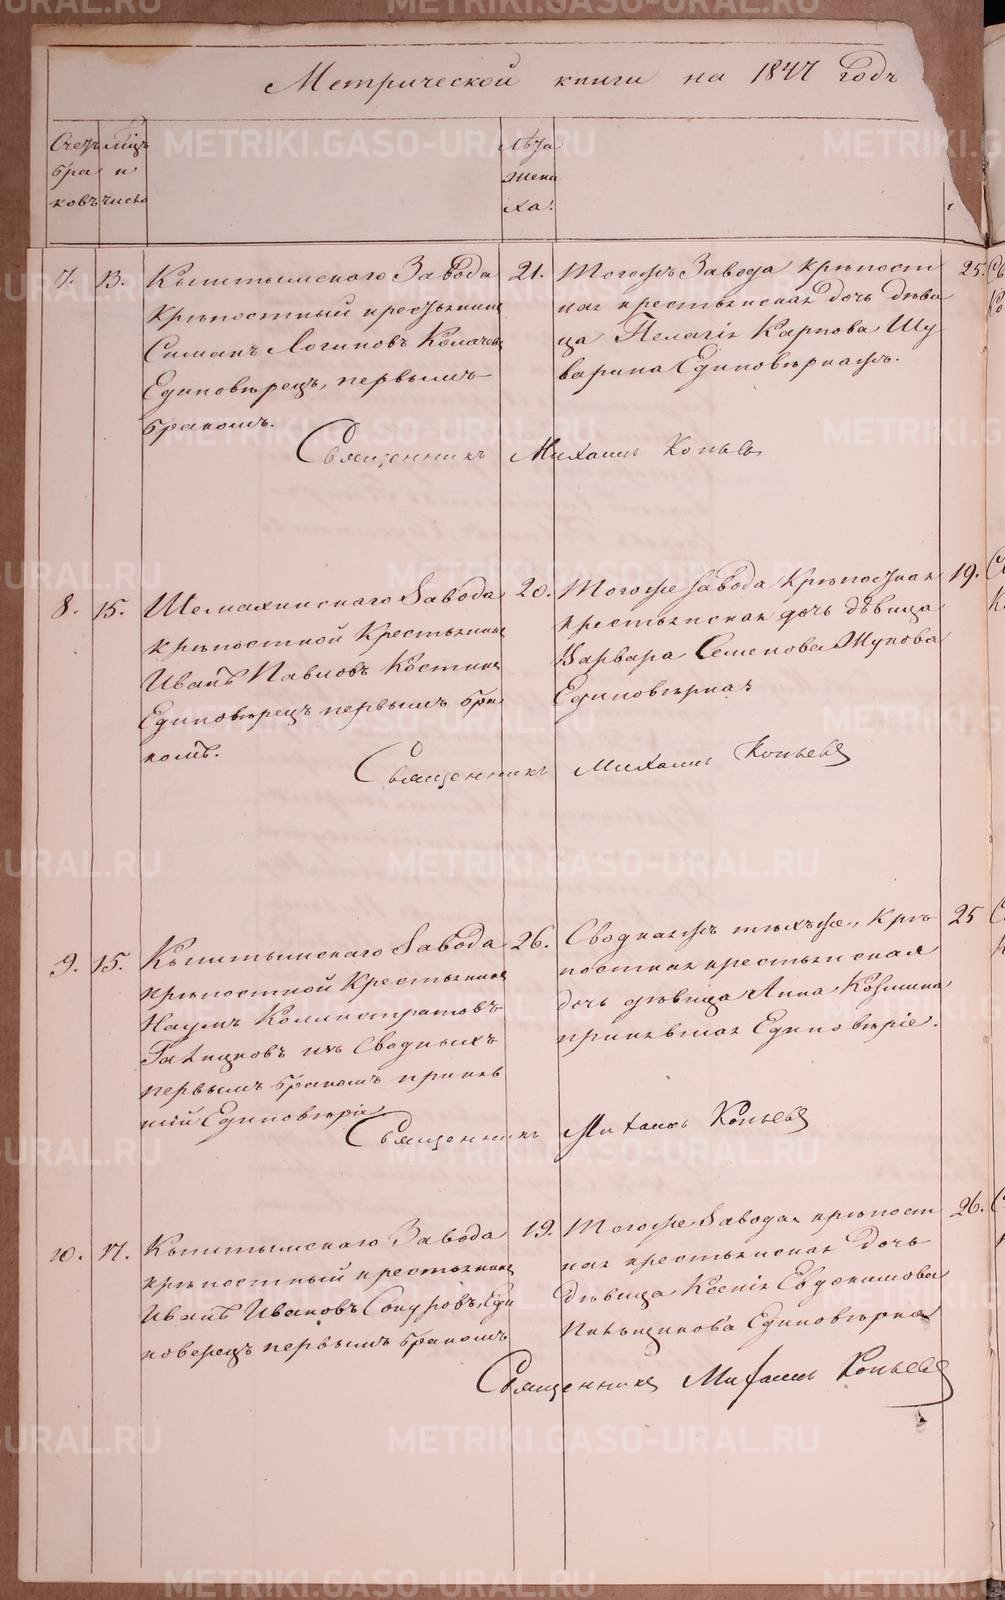 Метрической книги на 1847 годъ
Счетъ бра ковъ
мѣсц и число
Лѣта жени ха.
7. 13. Кыштымскаго Завода
крѣпостный крестьянинъ
Симанъ Логиновъ
Единовѣрецъ, первымъ
бракомъ.
21. Тогожъ Завода крѣпост
ная крестьянская дочь дѣви
ца Пелагія Карпова Шу
варина Единовѣрнажъ.
25.
Священникъ Михаилъ Копьев
8. 15. Шемахинскаго Завода
крѣпостной Крестьянинъ
Иванъ Павловъ Костинъ
Единовѣрецъ первымъ бра
комъ.
20. Тогоже Завода Крѣпостная
крестьянская дочь дѣвица
Варвара Семенова Жукова
Единовѣрная
19.
Священникъ Михаилъ Копьевъ
9. 15. Кыштымскаго Завода
крѣпостной Крестьянинъ
Наумъ Калистратовъ
изъ Сводныхъ
первымъ бракомъ приняв
шій Единовѣріе
26. Своднаяжъ тѣхъже, Крѣ
постная крестьянская
дочь дѣвица Анна Козмина
принявшая Единовѣріе.
25
Священникъ Михаилъ Копьевъ
10. 17. Кыштымскаго Завода
крѣпостный крестьянинъ
Иванъ Ивановъ Сокуровъ, Еди
новерецъ первымъ бракомъ
19. Тогоже Завода крѣпост
ная крестьянская дочь
дѣвица Ксенія Евдокимова
Единовѣрная
26.
Священникъ Михаилъ Копьевъ
METRIKI.GASO-URAL.RU